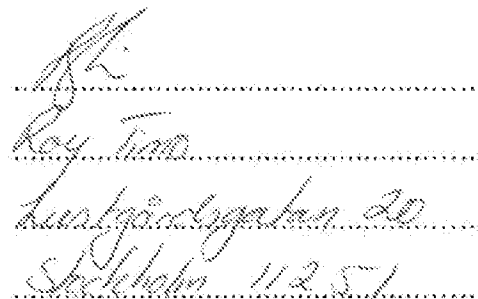 Roy Timo
Lustgårdsgatan 20
Stockholm 112 51